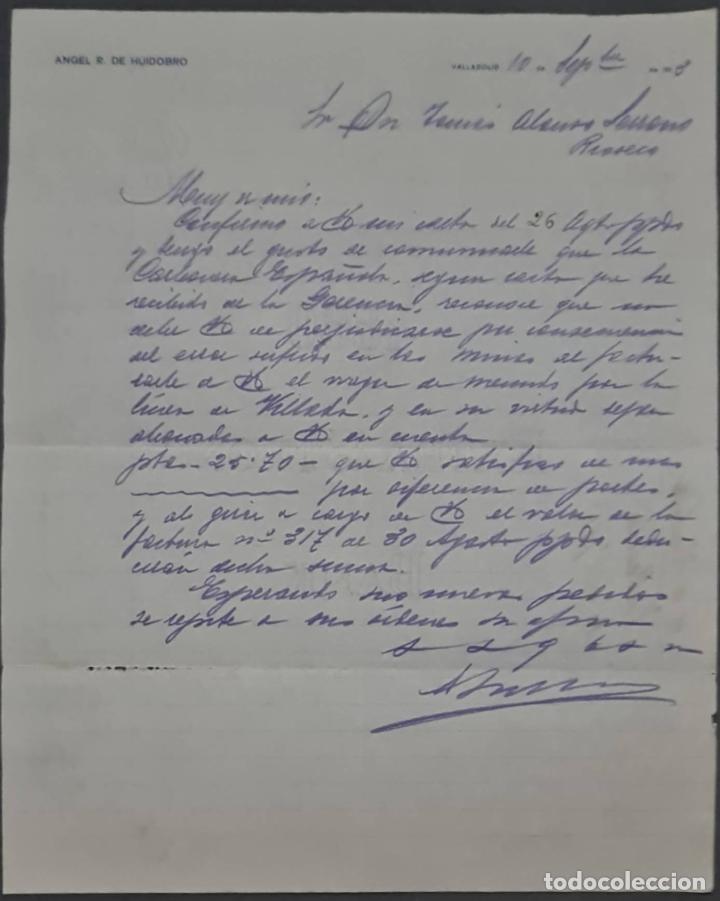 ANGEL R. DE HUIDOBRO
VALLADOLID 10 de Sepbre de 8
Sr Dn Tomás Alonso Serrano
Rioseco
Muy sr mio:
Confirmo a Vd mi carta del 26 Agto ppdo
y tengo el gusto de comunicarle que la
Carbonera Española, segun carta que he
recibido de la Gerencia, reconoce que no
debe Vd de perjudicarse por consecuencia
del error sufrido en las minas al factu-
rarle a Vd el vagon de menudo por la
linea de Villada, y en su virtud seran
abonadas a Vd en cuenta
ptas- 25.70 - que Vd satisfizo de mas
por diferencia de portes,
y al girar a cargo de Vd el valor de la
factura nº 317 de 30 Agosto ppdo dedu-
ciran dicha suma.
Esperando sus nuevos pedidos
se repite a sus órdenes su afmo
s s q b s m
todocoleccion
todocoleccion.net